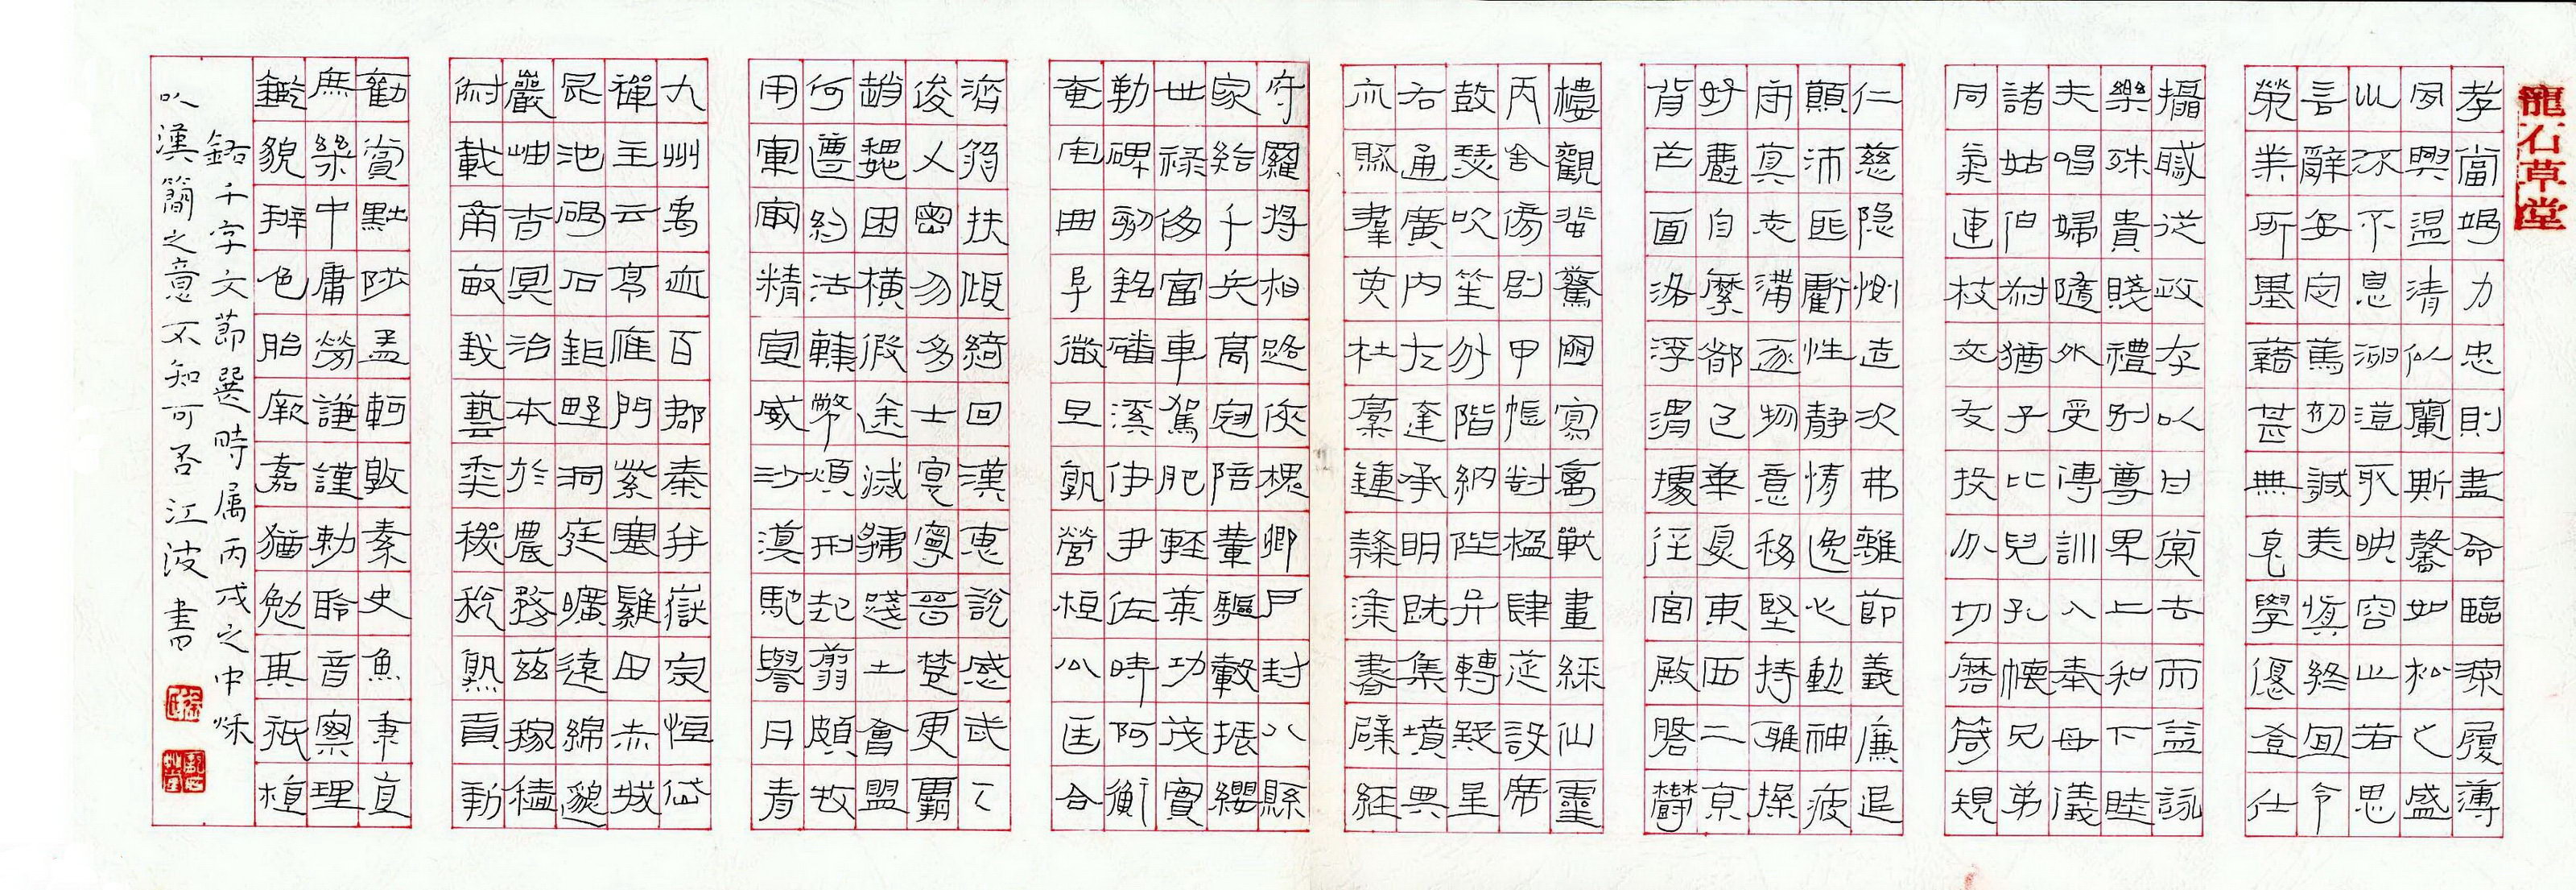 龍石草堂
孝當竭力忠則盡命臨深履薄
夙興溫清似蘭斯馨如松之盛
川流不息淵澄取映容止若思
言辭安定篤初誠美慎終宜令
榮業所基藉甚無竟學優登仕
攝職從政存以甘棠去而益詠
樂殊貴賤禮別尊卑上和下睦
夫唱婦隨外受傅訓入奉母儀
諸姑伯叔猶子比兒孔懷兄弟
同氣連枝交友投分切磨箴規
仁慈隐惻造次弗離節義廉退
顛沛匪虧性靜情逸心動神疲
守真志滿逐物意移堅持雅操
好爵自縻都邑華夏東西二京
背芒面洛浮渭據涇宮殿磐鬱
樓觀蜚驚圖寫禽獸畫綵仙靈
丙舍傍啟甲帳對楹肆筵設席
鼓瑟吹笙升階納陛弁轉疑星
右通廣內左達承明既集墳典
亦聚羣英杜槀鍾隸漆書壁經
府羅將相路俠槐卿戶封八縣
家給千兵高冠陪輦驅轂振纓
世祿侈富車駕肥輕策功茂實
勒碑刻銘磻溪伊尹佐時阿衡
奄宅曲阜微旦孰營桓公匡合
濟弱扶傾綺回漢惠說感武丁
俊乂密勿多士寔寧晉楚更霸
趙魏困橫假途滅虢踐土會盟
何遵約法韓幣煩刑起翦頗牧
用軍最精宣威沙漠馳譽丹青
九州禹跡百郡秦并嶽宗恒岱
禪主云亭雁門紫塞雞田赤城
昆池碣石鉅野洞庭曠遠綿邈
巖岫杳冥治本於農務茲稼穡
俶載南畝我藝黍稷稅熟貢新
勸賞黜陟孟軻敦素史魚秉直
庶幾中庸勞謙謹勅聆音察理
鑑貌辨色貽厥嘉猷勉其祗植
錄千字文節選時属丙戌之中秋
以漢簡之意不知可否江波書